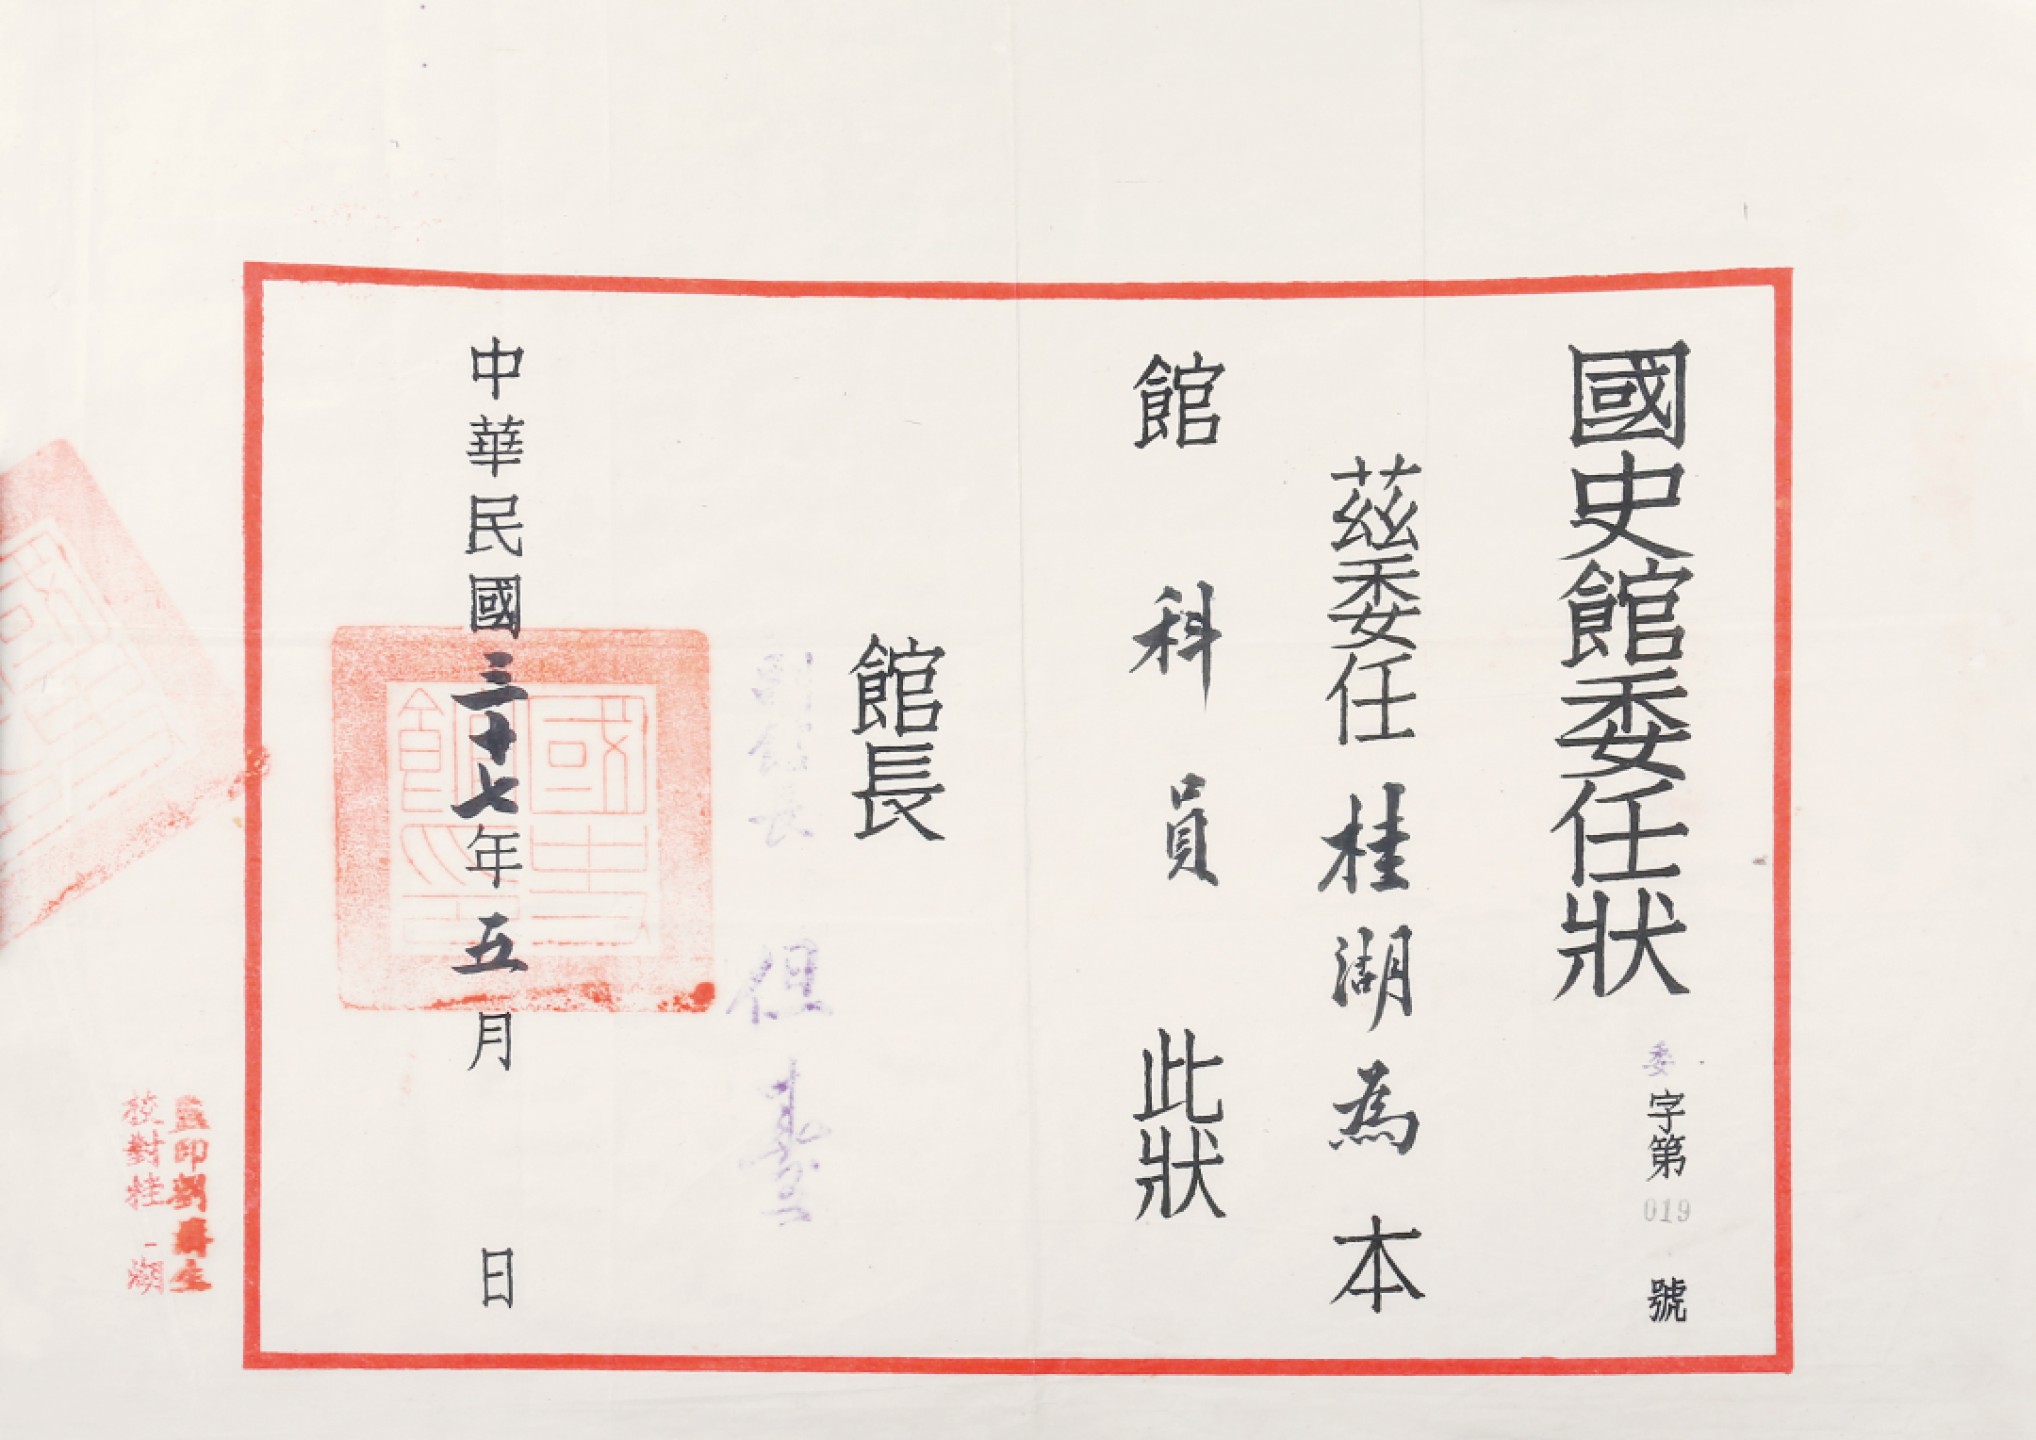 國史館委任狀
委字第019號
茲委任桂湖為本
館科員此狀
館長
副館長 但燾
中華民國三十七年五月 日
國史
館印
監印劉壽生
校對桂湖